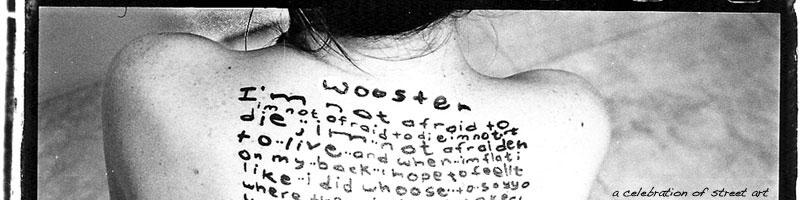 wooster
I'm not afraid to
im not afraid to die im not
die ,, im not afraid
to..live..and when..im flat i
on my..back..i hope to feel it
like..i did whoose..to..sayyo
where
a celebration of street art